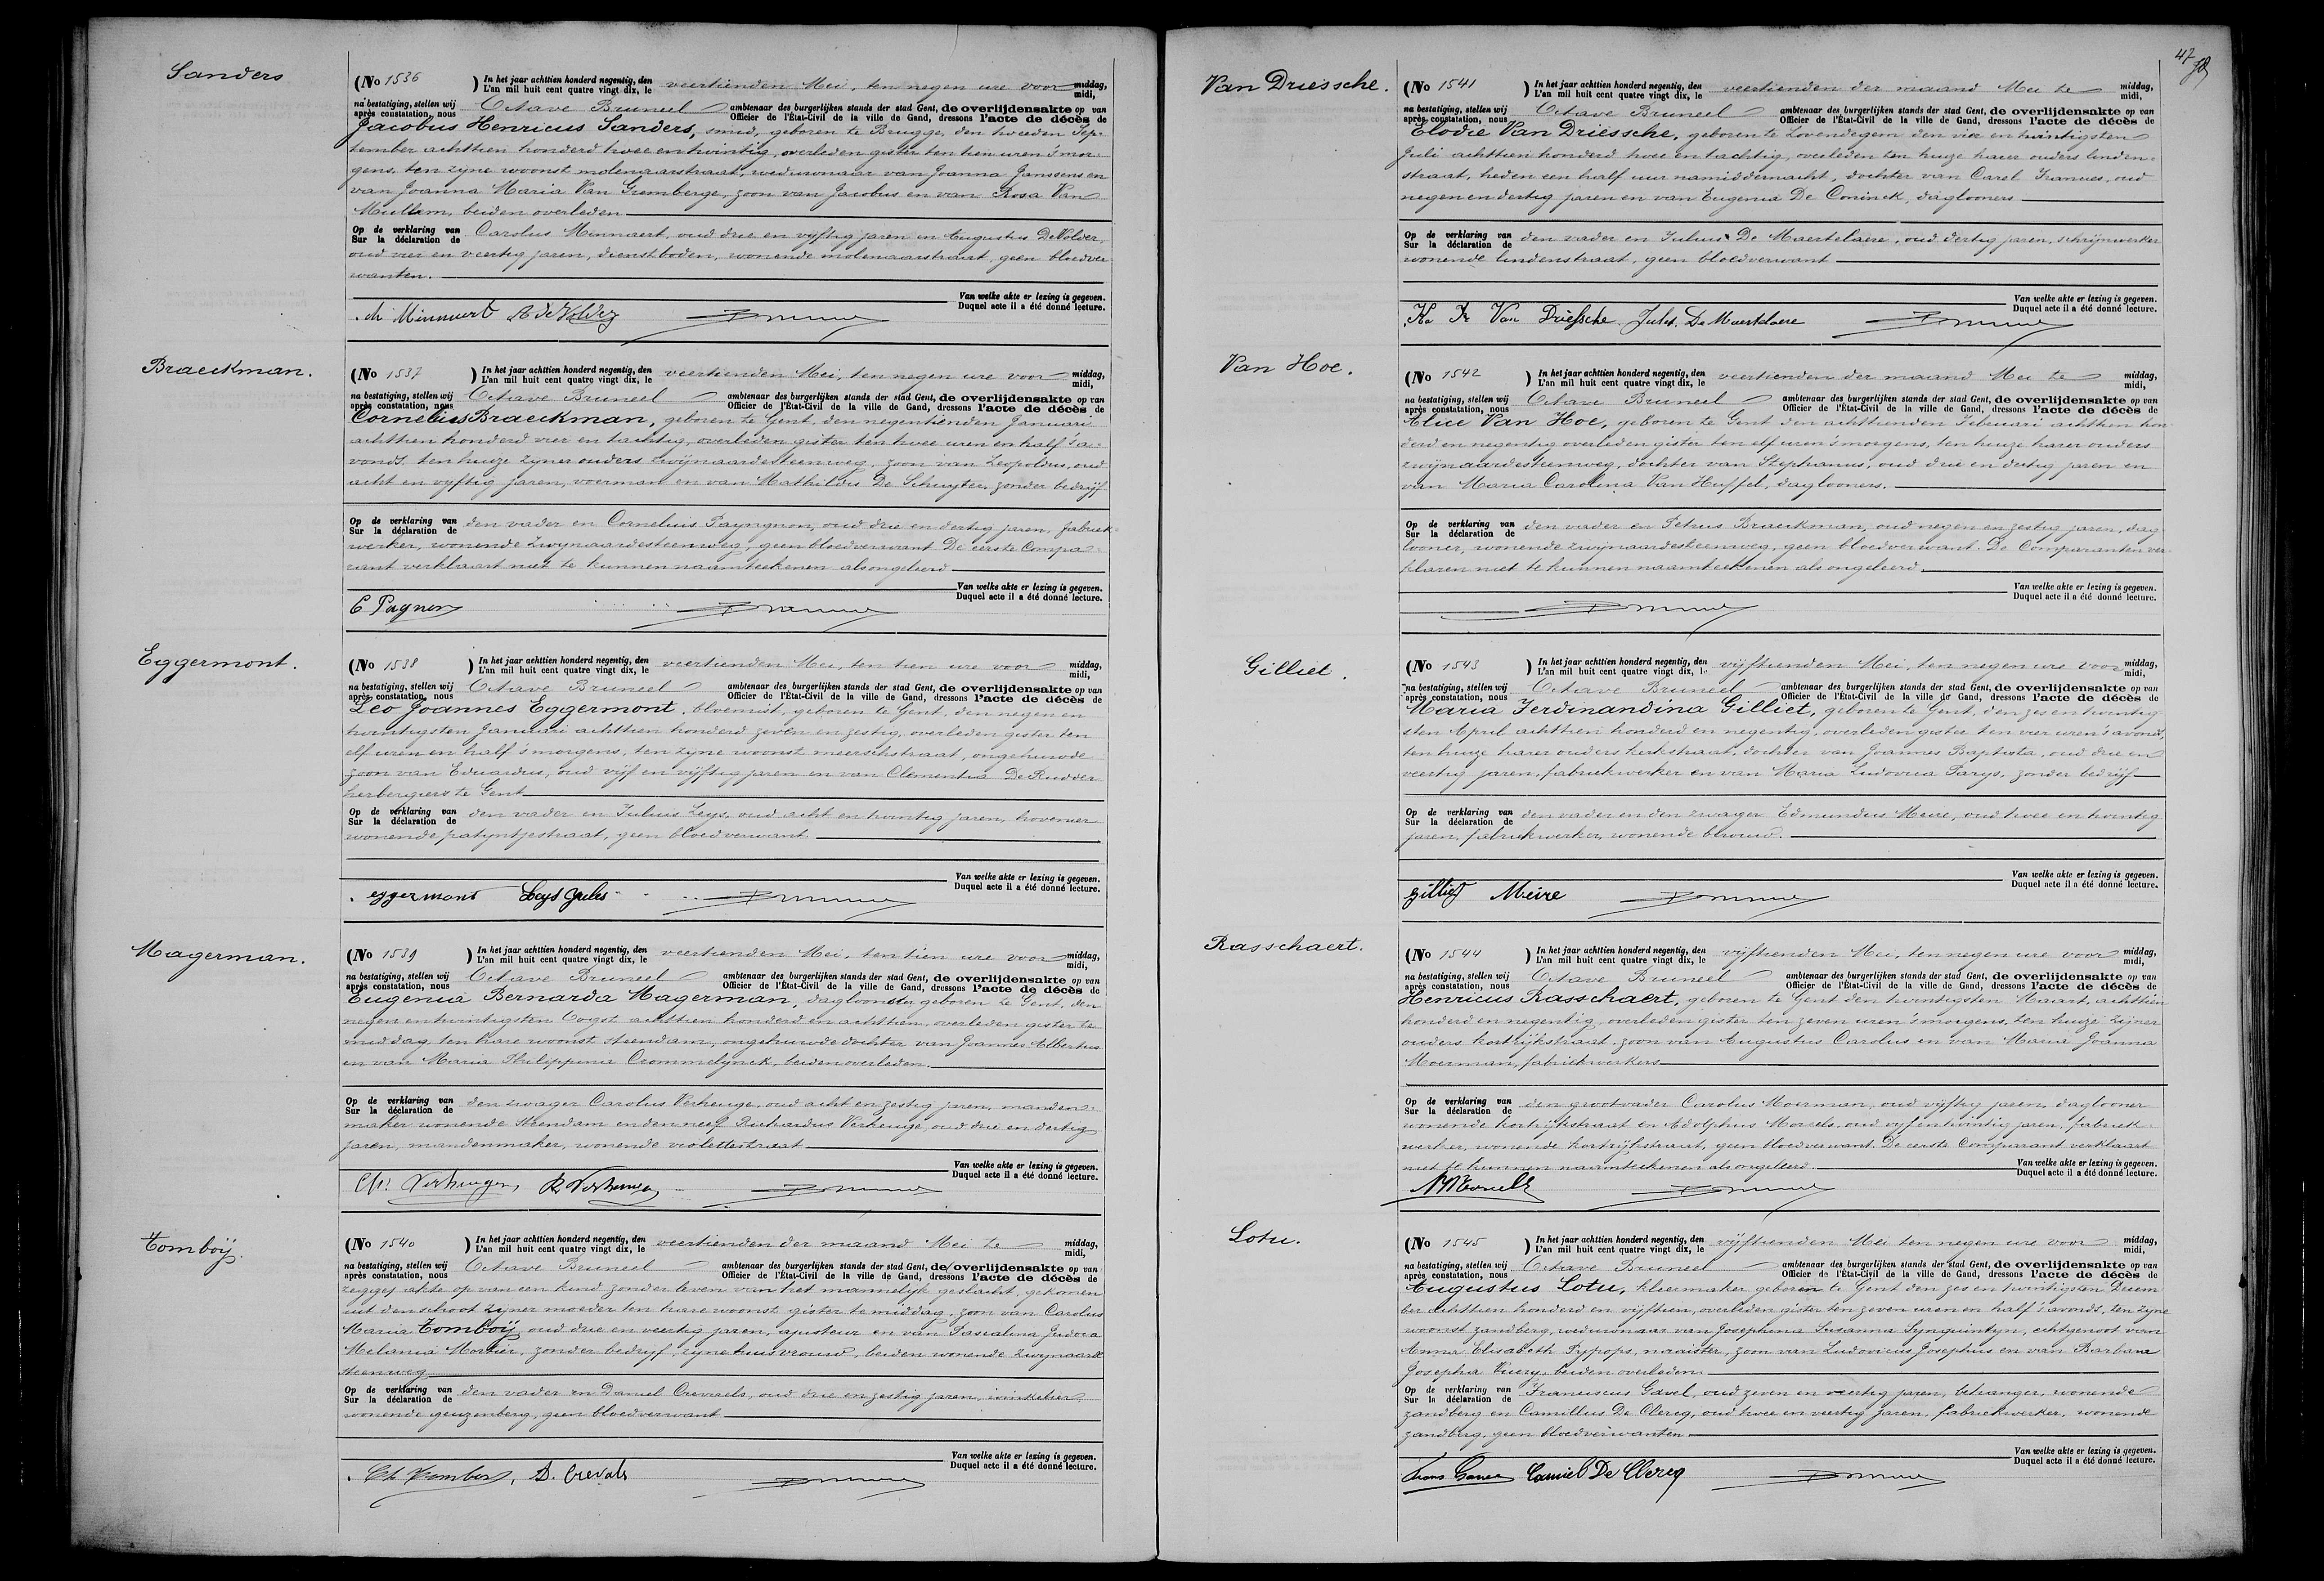 47
Sanders
(No 1536 ) In het jaar achttien honderd negentig, den veertienden Mei, ten negen ure voor middag,
L'an mil huit cent quatre vingt dix, le midi,
na bestatiging, stellen wij Octave Bruneel ambtenaar des burgerlijken stands der stad Gent, de overlijdensakte op van
après constatation, nous Officier de l'État-Civil de la ville de Gand, dressons l'acte de décès de
Jacobus Henricus Sanders, smid, geboren te Brugge, den tweeden Sep-
tember achttien honderd twee en twintig, overleden gister ten tien uren 's mor-
gens, ten zijne woonst molenaarstraat, weduwnaar van Joanna Janssens en
van Joanna Maria Van Gremberge, zoon van Jacobus en van Rosa Van
Mullem, beiden overleden
Op de verklaring van Carolus Minnaert, oud drie en vijftig jaren en Augustus De Volder,
Sur la déclaration de
oud vier en veertig jaren, dienstboden, wonende molenaarstraat, geen bloedver
wanten.
Van welke akte er lezing is gegeven.
Duquel acte il a été donné lecture.
Minnaert A de Volder
Braeckman.
(No 1537 ) In het jaar achttien honderd negentig, den veertienden Mei, ten negen ure voor middag,
L'an mil huit cent quatre vingt dix, le midi,
na bestatiging, stellen wij Octave Bruneel ambtenaar des burgerlijken stands der stad Gent, de overlijdensakte op van
après constatation, nous Officier de l'État-Civil de la ville de Gand, dressons l'acte de décès de
Cornelius Braeckman, geboren te Gent, den negentienden Januari
achttien honderd vier en tachtig, overleden gister ten twee uren en half 's a-
vonds, ten huize zijner ouders zwijnaardesteenweg, zoon van Leopoldus, oud
acht en vijftig jaren, voerman en van Mathildis De Schuyter, zonder bedrijf
Op de verklaring van den vader en Cornelius Payngnon, oud drie en dertig jaren, fabriek-
Sur la déclaration de
werker, wonende zwijnaardesteenweg, geen bloedverwant. De eerste Compa-
rant verklaart niet te kunnen naamteekenen als ongeleerd
Van welke akte er lezing is gegeven.
Duquel acte il a été donné lecture.
C Pagnon
Eggermont.
(No 1538 ) In het jaar achttien honderd negentig, den veertienden Mei, ten tien ure voor middag,
L'an mil huit cent quatre vingt dix, le midi,
na bestatiging, stellen wij Octave Bruneel ambtenaar des burgerlijken stands der stad Gent, de overlijdensakte op van
après constatation, nous Officier de l'État-Civil de la ville de Gand, dressons l'acte de décès de
Leo Joannes Eggermont, bloemist, geboren te Gent, den negen en
twintigsten Januari achttien honderd zeven en zestig, overleden gister ten
elf uren en half 's morgens, ten zijne woonst meerschstraat, ongehuwde
zoon van Eduardus, oud vijf en vijftig jaren en van Clementia De Rudder
herbergiers te Gent
Op de verklaring van den vader en Julius Leys, oud acht en twintig jaren, hovenier
Sur la déclaration de
wonende patijntjestraat, geen bloedverwant
Van welke akte er lezing is gegeven.
Duquel acte il a été donné lecture.
eggermont Leys Jules
Magerman.
(No 1539 ) In het jaar achttien honderd negentig, den veertienden Mei, ten tien ure voor middag,
L'an mil huit cent quatre vingt dix, le midi,
na bestatiging, stellen wij Octave Bruneel ambtenaar des burgerlijken stands der stad Gent, de overlijdensakte op van
après constatation, nous Officier de l'État-Civil de la ville de Gand, dressons l'acte de décès de
Eugenia Bernarda Magerman, dagloonster geboren te Gent, den
negen en twintigsten Oogst achttien honderd en achttien, overleden gister te
middag, ten hare woonst steendam, ongehuwde dochter van Joannes Albertus
en van Maria Philippina Crommelynck, beiden overleden.
Op de verklaring van den zwager Carolus Verheuge, oud acht en zestig jaren, manden-
Sur la déclaration de
maker wonende Steendam en den neef Richardus Verheuge, oud drie en dertig
jaren, mandenmaker, wonende violettestraat
Van welke akte er lezing is gegeven.
Duquel acte il a été donné lecture.
Verheugen R Verheuge
Tomboÿ.
(No 1540 ) In het jaar achttien honderd negentig, den veertienden der maand Mei te middag,
L'an mil huit cent quatre vingt dix, le midi,
na bestatiging, stellen wij Octave Bruneel ambtenaar des burgerlijken stands der stad Gent, de overlijdensakte op van
après constatation, nous Officier de l'État-Civil de la ville de Gand, dressons l'acte de décès de
zeggej akte op van een kind zonder leven van het mannelijk geslacht, gekomen
uit den schoot zijner moeder ten hare woonst gister te middag, zoon van Carolus
Maria Tomboÿ oud drie en veertig jaren, ajusteur en van Pascalina Judoca
Melania Mortier, zonder bedrijf, zijne huisvrouw, beiden wonende zwijnaarde
steenweg
Op de verklaring van den vader en Daniel Crevaels, oud drie en zestig jaren, winkelier
Sur la déclaration de
wonende geuzenberg, geen bloedverwant
Van welke akte er lezing is gegeven.
Duquel acte il a été donné lecture.
Ch Tomboy, D. Crevals
Van Driessche.
(No 1541 ) In het jaar achttien honderd negentig, den veertienden der maand Mei te middag,
L'an mil huit cent quatre vingt dix, le midi,
na bestatiging, stellen wij Octave Bruneel ambtenaar des burgerlijken stands der stad Gent, de overlijdensakte op van
après constatation, nous Officier de l'État-Civil de la ville de Gand, dressons l'acte de décès de
Elodie Van Driessche, geboren te Lovendegem den vier en twintigsten
Juli achttien honderd twee en tachtig, overleden ten huize harer ouders linden-
straat, heden een half uur namiddernacht, dochter van Carel Francies, oud
negen en dertig jaren en van Eugenia De Coninck, daglooners
Op de verklaring van den vader en Julius De Maertelaere, oud dertig jaren, schrijnwerker
Sur la déclaration de
wonende lindenstraat, geen bloedverwant
Van welke akte er lezing is gegeven.
Duquel acte il a été donné lecture.
Ka Fr Van Driessche Jules De Maertelaere
Van Hoe.
(No 1542 ) In het jaar achttien honderd negentig, den veertienden der maand Mei te middag,
L'an mil huit cent quatre vingt dix, le midi,
na bestatiging, stellen wij Octave Bruneel ambtenaar des burgerlijken stands der stad Gent, de overlijdensakte op van
après constatation, nous Officier de l'État-Civil de la ville de Gand, dressons l'acte de décès de
Alice Van Hoe, geboren te Gent den achttienden Februari achttien hon
derd en negentig overleden gister ten elf uren 's morgens, ten huize harer ouders
zwijnaardesteenweg, dochter van Stephanus, oud drie en dertig jaren en
van Maria Carolina Van Huffel, daglooners.
Op de verklaring van den vader en Petrus Braeckman, oud negen en zestig jaren, dag
Sur la déclaration de
looner, wonende zwijnaardesteenweg, geen bloedverwant. De Comparanten ver-
klaren niet te kunnen naamteekenen als ongeleerd.
Van welke akte er lezing is gegeven.
Duquel acte il a été donné lecture.
Gilliet.
(No 1543 ) In het jaar achttien honderd negentig, den vijftienden Mei, ten negen ure voor middag,
L'an mil huit cent quatre vingt dix, le midi,
na bestatiging, stellen wij Octave Bruneel ambtenaar des burgerlijken stands der stad Gent, de overlijdensakte op van
après constatation, nous Officier de l'État-Civil de la ville de Gand, dressons l'acte de décès de
Maria Ferdinandina Gilliet, geboren te Gent, den zes en twintig
sten April achttien honderd en negentig, overleden gister ten vier uren 's avonds,
ten huize harer ouders kerkstraat, dochter van Joannes Baptista, oud drie en
veertig jaren, fabriekwerker en van Maria Ludovica Parys, zonder bedrijf
Op de verklaring van den vader en den zwager Edmundus Meire, oud twee en twintig
Sur la déclaration de
jaren, fabriekwerker, wonende
Van welke akte er lezing is gegeven.
Duquel acte il a été donné lecture.
gilliet Meire
Rasschaert.
(No 1544 ) In het jaar achttien honderd negentig, den vijftienden Mei, ten negen ure voor middag,
L'an mil huit cent quatre vingt dix, le midi,
na bestatiging, stellen wij Octave Bruneel ambtenaar des burgerlijken stands der stad Gent, de overlijdensakte op van
après constatation, nous Officier de l'État-Civil de la ville de Gand, dressons l'acte de décès de
Henricus Rasschaert, geboren te Gent den twintigsten Maart, achttien
honderd en negentig, overleden gister ten zeven uren 's morgens, ten huize zijner
ouders kortrijkstraat, zoon van Augustus Carolus en van Maria Joanna
Moerman, fabriekwerkers
Op de verklaring van den grootvader Carolus Moerman, oud vijftig jaren, daglooner
Sur la déclaration de
wonende kortrijkstraat en Adolphus Morels, oud vijf en twintig jaren, fabriek-
werker, wonende kortrijkstraat, geen bloedverwant. De eerste Comparant verklaart
niet te kunnen naamteekenen als ongeleerd. Van welke akte er lezing is gegeven.
Duquel acte il a été donné lecture.
Lotu.
(No 1545 ) In het jaar achttien honderd negentig, den vijftienden Mei ten negen ure voor middag,
L'an mil huit cent quatre vingt dix, le midi,
na bestatiging, stellen wij Octave Bruneel ambtenaar des burgerlijken stands der stad Gent, de overlijdensakte op van
après constatation, nous Officier de l'État-Civil de la ville de Gand, dressons l'acte de décès de
Augustus Lotu, kleermaker geboren te Gent den zes en twintigsten Decem
ber achttien honderd en vijftien, overleden gister ten zeven uren en half 's avonds, ten zijne
woonst zandberg, weduwnaar van Josephina Susanna Synquintyn, echtgenoot van
Anna Elisabeth Pypops, naaister, zoon van Ludovicus Josephus en van Barbara
Josepha Viery, beiden overleden
Op de verklaring van Franciscus Gavel, oud zeven en veertig jaren, behanger, wonende
Sur la déclaration de
zandberg en Camillus De Clercq, oud twee en veertig jaren, fabriekwerker, wonende
zandberg, geen bloedverwanten
Van welke akte er lezing is gegeven.
Duquel acte il a été donné lecture.
Camiel De Clercq